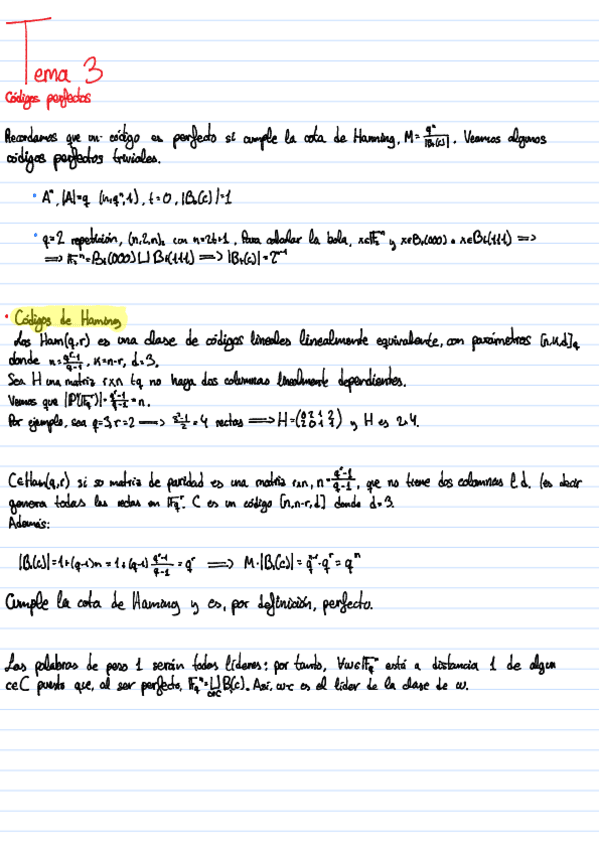 Tema 3
Códigos perfectos
Recordamos que un código es perfecto si cumple la cota de Hamming, M = q^n/|Bt(c)|. Veamos algunos
códigos perfectos triviales.
• A^n, |A|=q (n,q^n,1), t=0, |Bt(c)|=1
• q=2 repetición, (n,2,n)₂ con n=2t+1. Para calcular la bola, x∈F₂^n y x∈Bt(000) o x∈Bt(111) ⟹
⟹ F₂^n = Bt(000) ⊔ Bt(111) ⟹ |Bt(c)| = 2^(n-1)
• Códigos de Haming
Los Ham(q,r) es una clase de códigos lineales linealmente equivalente, con parámetros [n,k,d]q
donde n = (q^r-1)/(q-1), k=n-r, d=3.
Sea H una matriz r×n tq no haya dos columnas linealmente dependientes.
Vemos que |P(F_q^r)| = (q^r-1)/(q-1) = n.
Por ejemplo, sea q=3, r=2 ⟶ (3²-1)/2 = 4 rectas ⟹ H = y H es 2×4.
C∈Ham(q,r) si su matriz de paridad es una matriz r×n, n = (q^r-1)/(q-1), que no tiene dos columnas l.d. (es decir
genera todas las rectas en F_q^r. C es un código [n,n-r,d] donde d=3.
Además:
|B₁(c)| = 1+(q-1)n = 1+(q-1) (q^r-1)/(q-1) = q^r ⟹ M·|B₁(c)| = q^(n-r)·q^r = q^n
Cumple la cota de Haming y es, por definición, perfecto.
Las palabras de peso 1 serán todos líderes; por tanto, ∀w∈F_q^n está a distancia 1 de algun
c∈C puesto que, al ser perfecto, F_q^n = ⊔_{c∈C} B₁(c). Así, w-c es el líder de la clase de w.